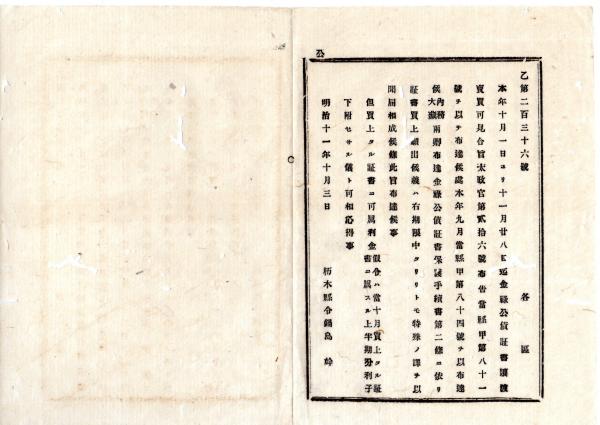 公
乙第二百三十六號
各區
本年十月一日ヨリ十一月廿八日迄金祿公債証書讓渡
賣買可見合旨太政官第貳拾六號布告當縣甲第八十一
號ヲ以テ布達候處本年九月當縣甲第八十四號ヲ以布達
候内務大藏兩卿布達金祿公債証書保護手續書第二條ニ依リ
証書買上願出候義ハ右期限中タリトモ特殊ノ譯ヲ以
聞届相成候條此旨布達候事
但買上タル証書ニ可属利金假令ハ當十月買上タル証書ニ属スル上半期分利子
下附セサル儀ト可相心得事
明治十一年十月三日
栃木縣令鍋島幹